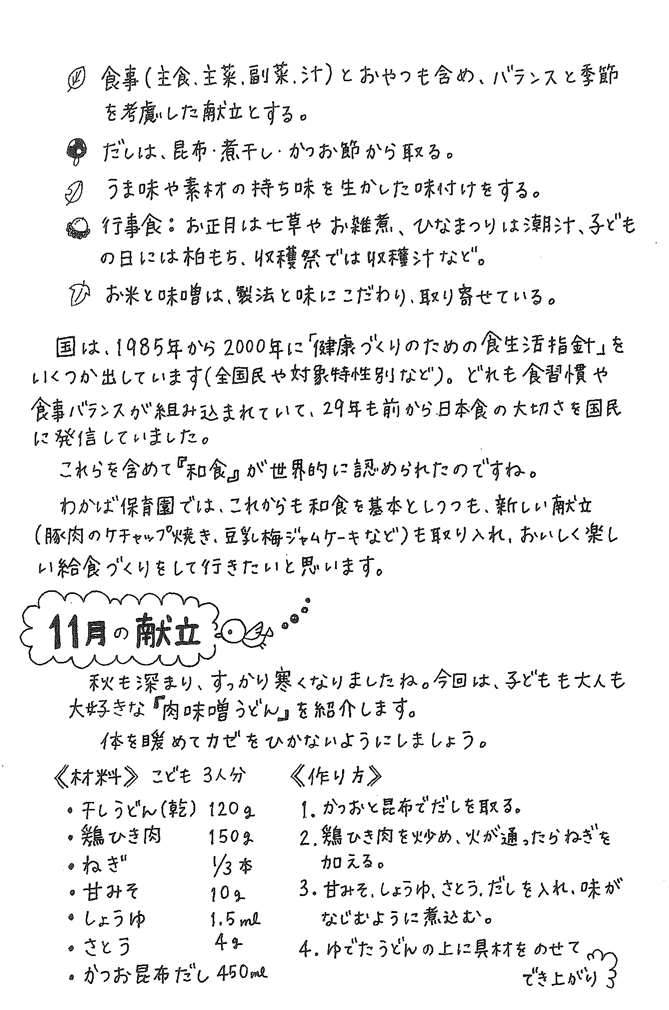 食事(主食.主菜.副菜.汁)とおやつも含め、バランスと季節
を考慮した献立とする。
だしは、昆布・煮干し・かつお節から取る。
うま味や素材の持ち味を生かした味付けをする。
行事食：お正月は七草やお雑煮、ひなまつりは潮汁、子ども
の日には柏もち、収穫祭では収穫汁など。
お米と味噌は、製法と味にこだわり、取り寄せている。
国は、1985年から2000年に「健康づくりのための食生活指針」を
いくつか出しています(全国民や対象特性別など)。どれも食習慣や
食事バランスが組み込まれていて、29年も前から日本食の大切さを国民
に発信していました。
これらを含めて『和食』が世界的に認められたのですね。
わかば保育園では、これからも和食を基本としつつも、新しい献立
(豚肉のケチャップ焼き、豆乳梅ジャムケーキなど)も取り入れ、おいしく楽し
い給食づくりをして行きたいと思います。
11月の献立
秋も深まり、すっかり寒くなりましたね。今回は、子どもも大人も
大好きな『肉味噌うどん』を紹介します。
体を暖めてカゼをひかないようにしましょう。
《材料》こども 3人分
・干しうどん(乾) 120g
・鶏ひき肉 150g
・ねぎ 1/3本
・甘みそ 10g
・しょうゆ 1.5ml
・さとう 4g
・かつお昆布だし 450ml
《作り方》
1. かつおと昆布でだしを取る。
2. 鶏ひき肉を炒め、火が通ったらねぎを
加える。
3. 甘みそ、しょうゆ、さとう、だしを入れ、味が
なじむように煮込む。
4. ゆでたうどんの上に具材をのせて
でき上がり